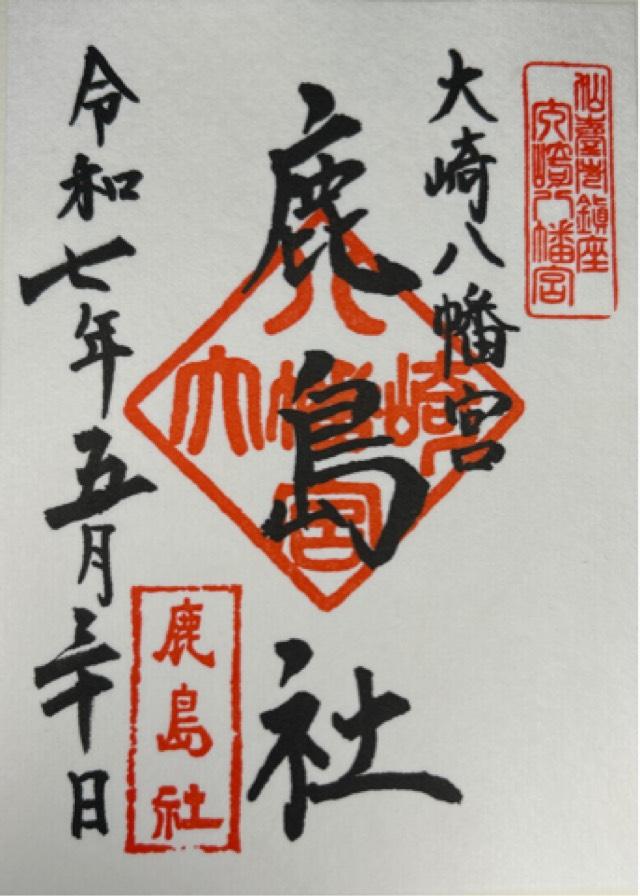 仙臺市鎮座
大崎八幡宮
大崎八幡宮
鹿島社
八
大幡崎
宮
鹿島社
令和七年五月三十日